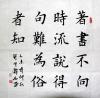 著書不向
時流說得
句難為俗
者知